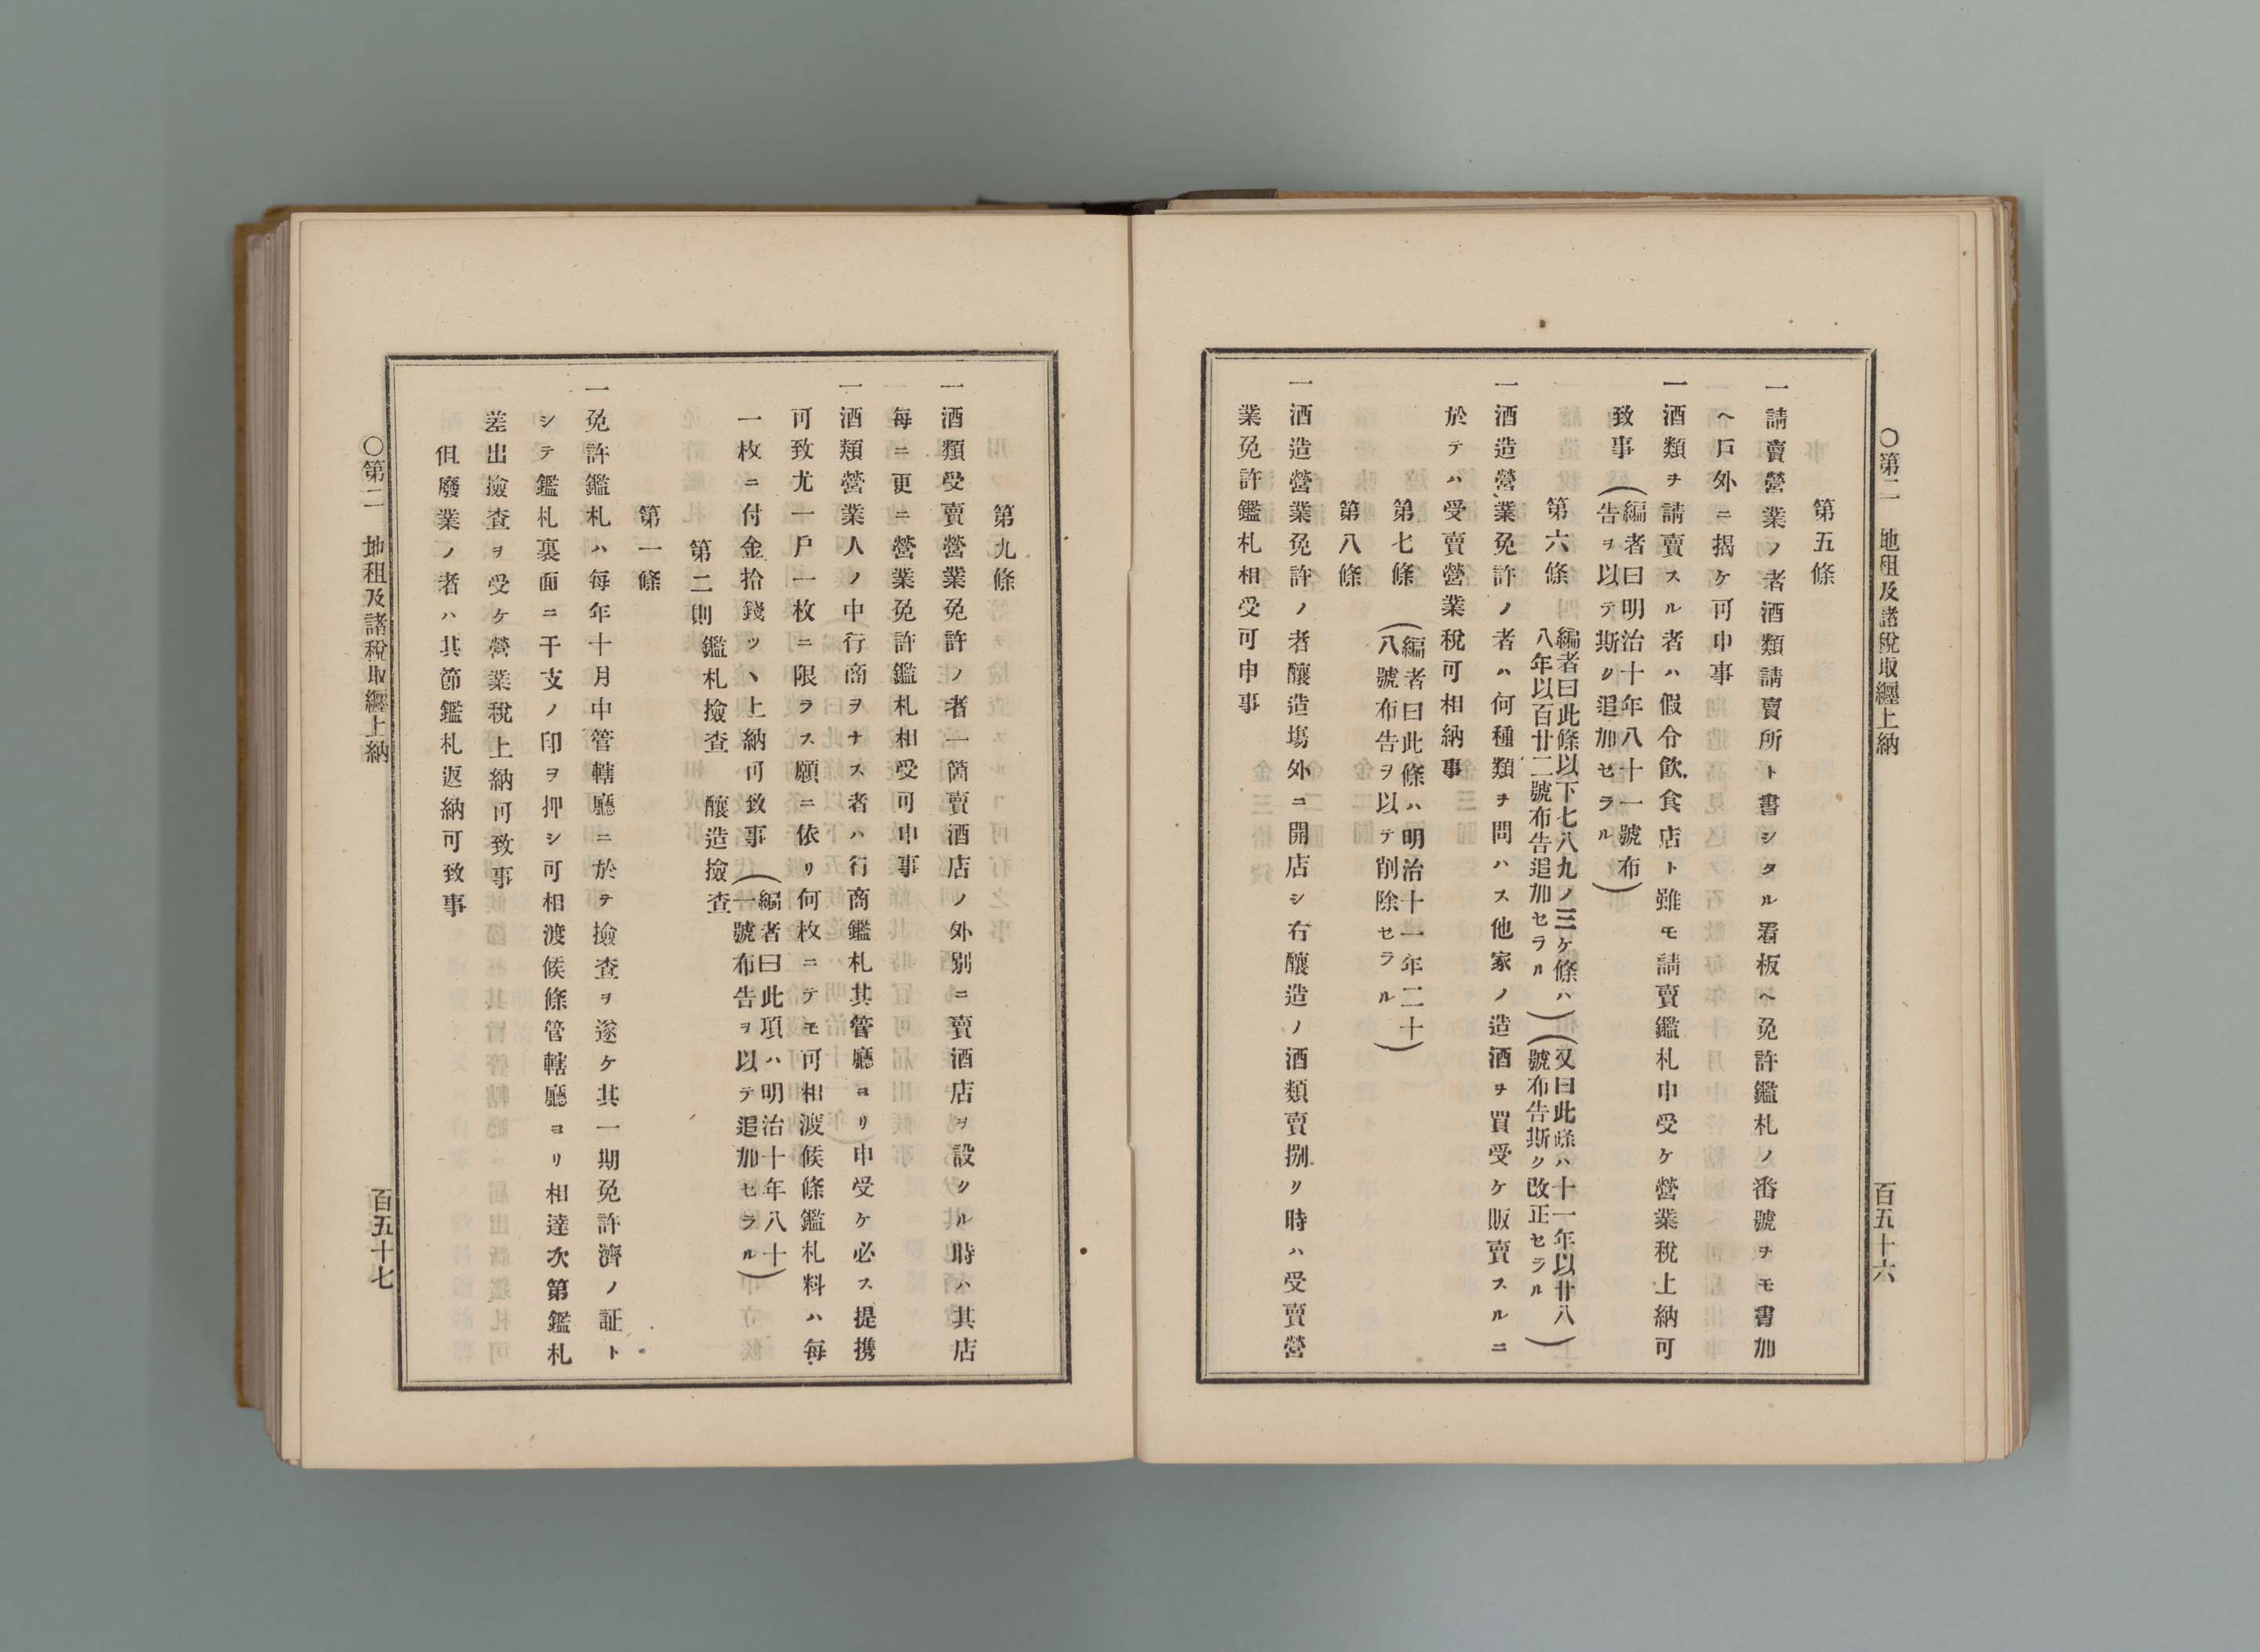 ○第二　地租及諸稅取纒上納
百五十六
第五條
一請賣營業ノ者酒類請賣所ト書シタル看板ヘ免許鑑札ノ番號ヲモ書加
ヘ戶外ニ揭ケ可申事
一酒類ヲ請賣スル者ハ假令飮食店ト雖モ請賣鑑札申受ケ營業稅上納可
致事（編者曰明治十年八十一號布
告ヲ以テ斯ク追加セラル）
第六條　編者曰此條以下七八九ノ三ケ條ハ）（又曰此條ハ十一年以廿八
八年以百廿二號布告追加セラル）（號布告斯ク改正セラル）
一酒造營業免許ノ者ハ何種類ヲ問ハス他家ノ造酒ヲ買受ケ販賣スルニ
於テハ受賣營業稅可相納事
第七條　（編者曰此條ハ明治十一年二十
八號布告ヲ以テ削除セラル）
第八條
一酒造營業免許ノ者釀造塲外ニ開店シ右釀造ノ酒類賣捌ク時ハ受賣營
業免許鑑札相受可申事
第九條
一酒類受賣營業免許ノ者一箇賣酒店ノ外別ニ賣酒店ヲ設クル時ハ其店
每ニ更ニ營業免許鑑札相受可申事
一酒類營業人ノ中行商ヲナス者ハ行商鑑札其管廳ヨリ申受ケ必ス提携
可致尤一戶一枚ニ限ラス願ニ依リ何枚ニテモ可相渡候條鑑札料ハ每
一枚ニ付金拾錢ツヽ上納可致事（編者曰此項ハ明治十年八十
一號布告ヲ以テ追加セラル）
第二則　鑑札撿查　釀造撿查
第一條
一免許鑑札ハ每年十月中管轄廳ニ於テ撿查ヲ遂ケ其一期免許濟ノ証ト
シテ鑑札裏面ニ干支ノ印ヲ押シ可相渡候條管轄廳ヨリ相達次第鑑札
差出撿查ヲ受ケ營業稅上納可致事
但廢業ノ者ハ其節鑑札返納可致事
○第二　地租及諸稅取纒上納
百五十七